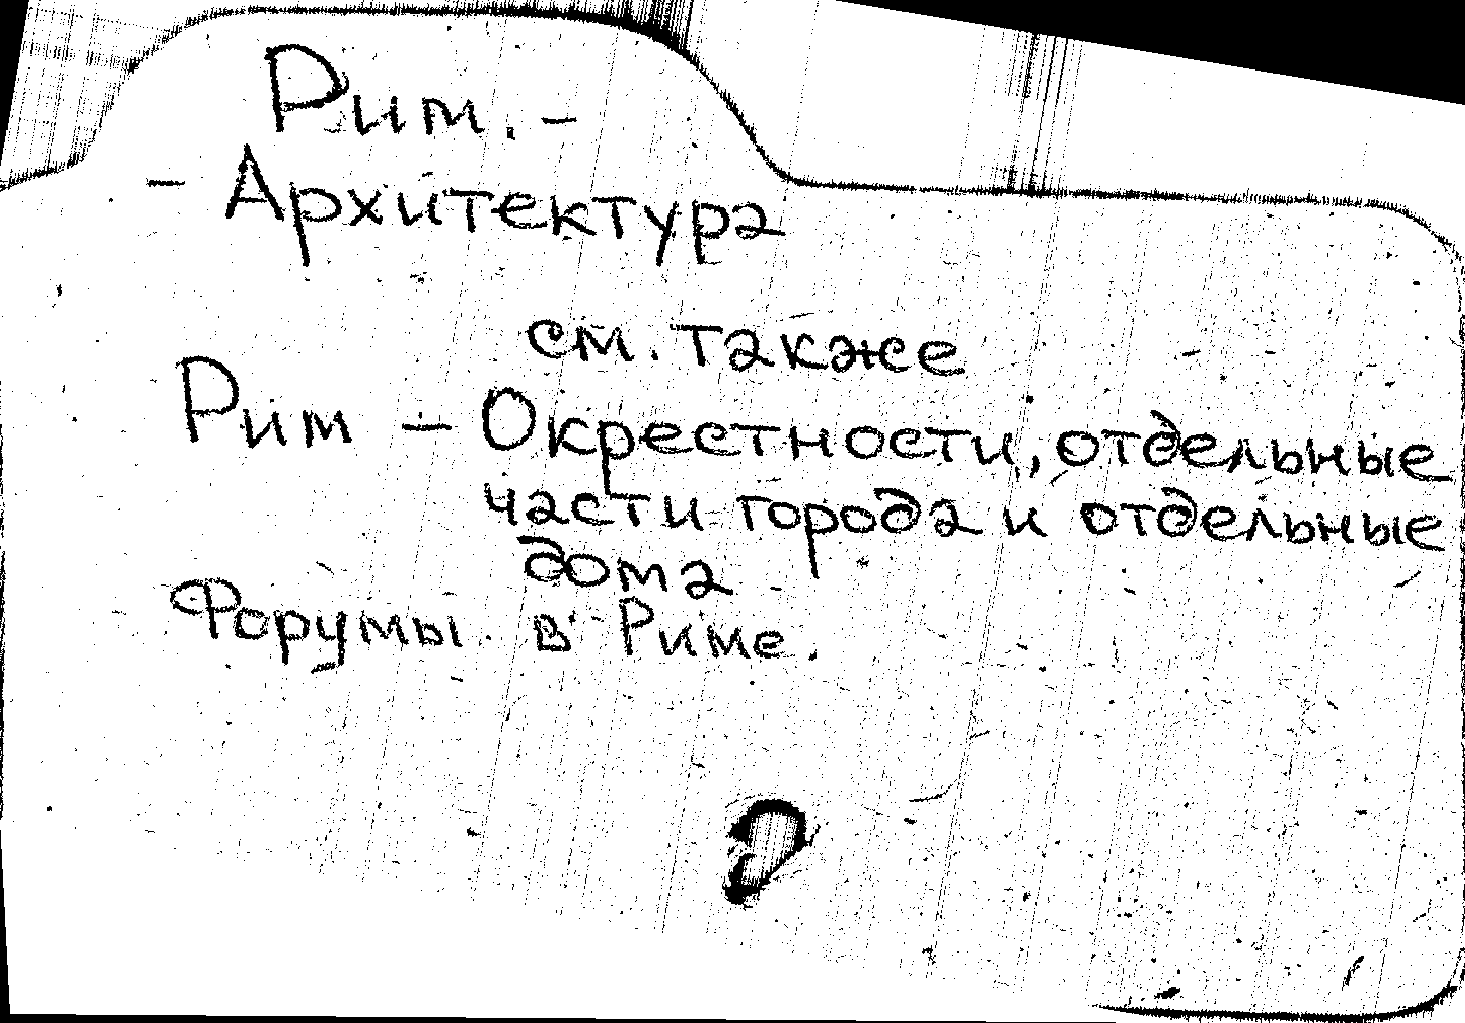 Рим. –
– Архитектура
см. также
Рим – Окрестности, отдельные
части города и отдельные
дома
Форумы в Риме.